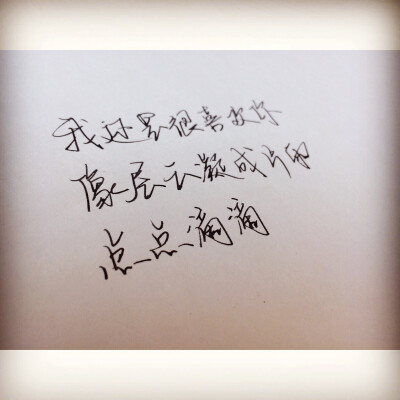 我还是很喜欢你
像层云凝成片雨
点点滴滴